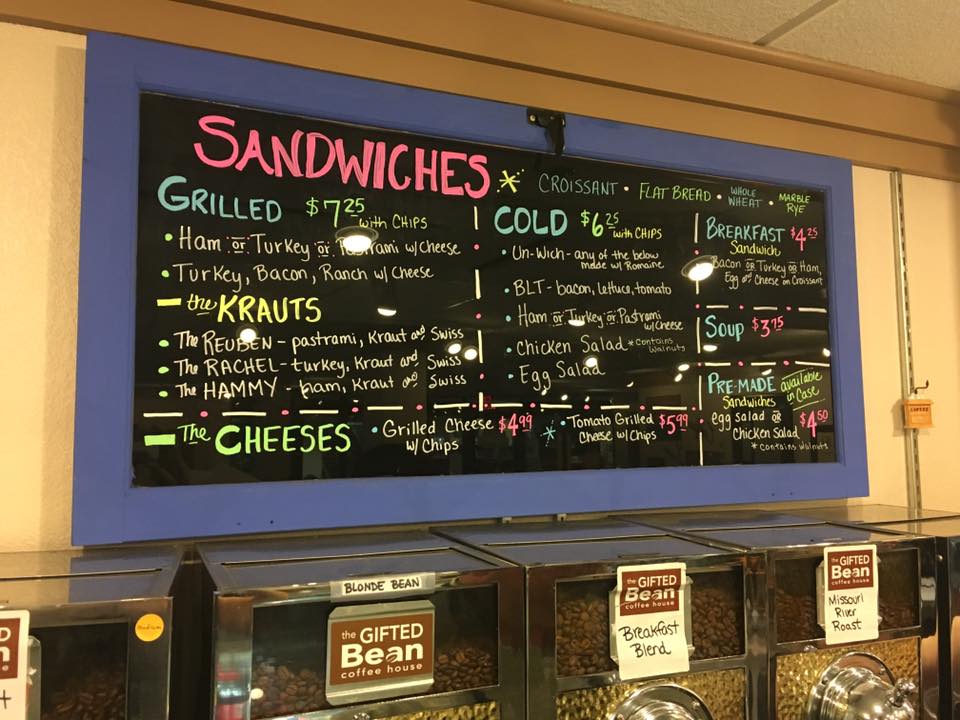 SANDWICHES * CROISSANT • FLAT BREAD • WHOLE WHEAT • MARBLE RYE
GRILLED $7.25 with CHIPS
• Ham or Turkey or Pastrami w/cheese
• Turkey, Bacon, Ranch w/ Cheese
the KRAUTS
• The REUBEN - pastrami, Kraut and Swiss
• The RACHEL - turkey, Kraut and Swiss
• The HAMMY - ham, Kraut and Swiss
COLD $6.25 with CHIPS
• Un-Wich - any of the below
made w/ Romaine
• BLT - bacon, lettuce, tomato
• Ham or Turkey or Pastrami
w/ Cheese
• Chicken Salad *contains
walnuts
• Egg Salad
BREAKFAST $4.25
Sandwich
Bacon or Turkey or Ham,
Egg and Cheese on Croissant
Soup $3.75
PRE-MADE available
in Case
Sandwiches
egg salad or
Chicken Salad $4.50
*contains walnuts
The CHEESES
• Grilled Cheese $4.99
w/ Chips
* • Tomato Grilled $5.99
Cheese w/ Chips
COFFEE
medium
BLONDE BEAN
the GIFTED
Bean
coffee house
the GIFTED
Bean
coffee house
Breakfast
Blend
the GIFTED
Bean
coffee house
Missouri
River
Roast